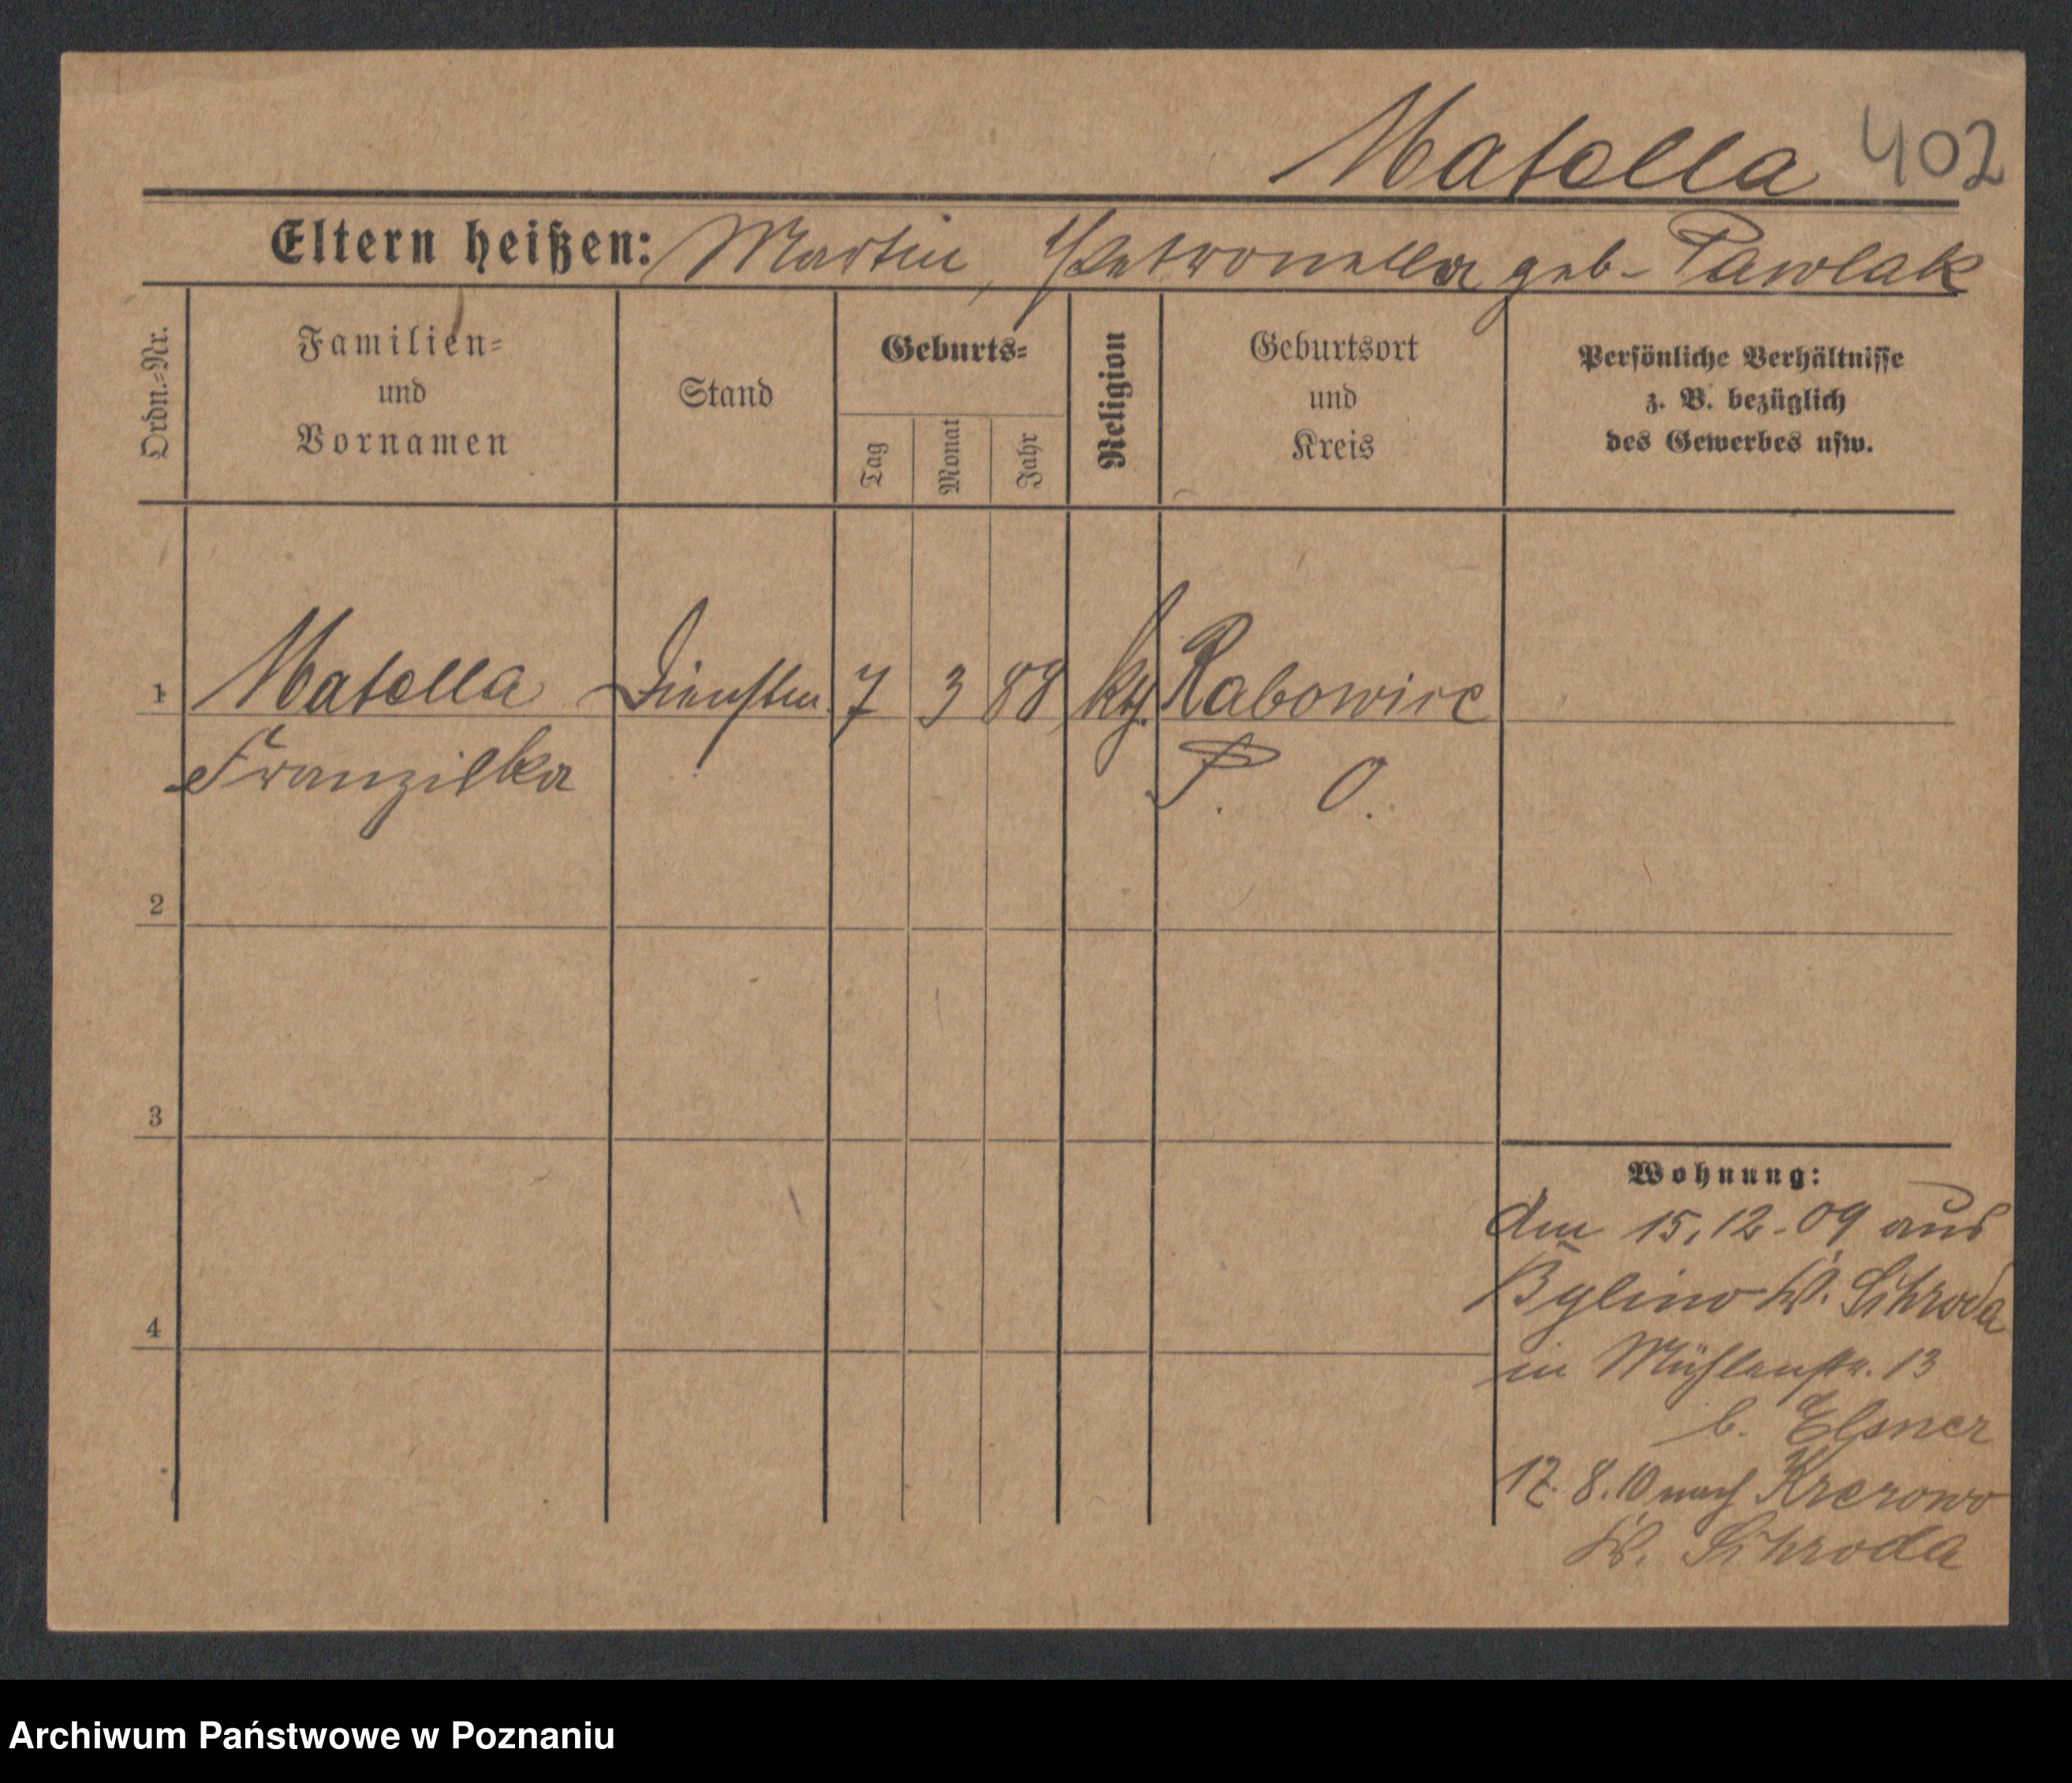 Matella 402
Eltern heißen: Martin, Petronella geb. Pawlak
Ordn.=Nr.
Familien=
und
Vornamen
Stand
Geburts=
Tag
Monat
Jahr
Religion
Geburtsort
und
Kreis
Persönliche Verhältnisse
z. B. bezüglich
des Gewerbes usw.
1 Matella Dienstm. 7 3 88 kth. Rabowice
Franziska P. O.
2
3
4
Wohnung:
den 15.12.09 aus
Bylino Kr. Schroda
in Mühlenstr. 13
b. Elsner
17.8.10 nach Krerowo
Kr. Schroda
Archiwum Państwowe w Poznaniu